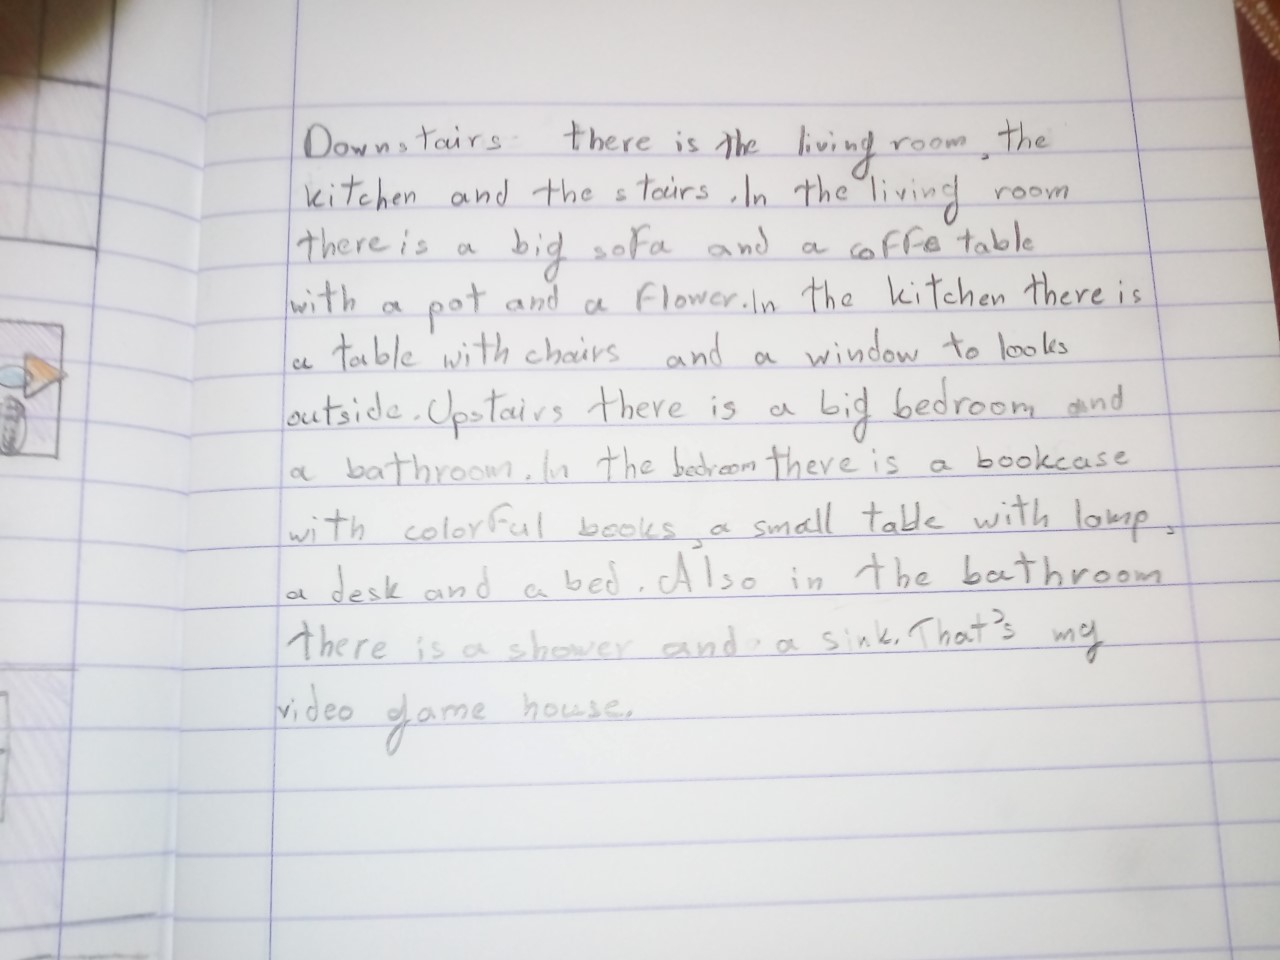 Downstairs there is the living room, the
kitchen and the stairs. In the living room
there is a big sofa and a coffe table
with a pot and a flower. In the kitchen there is
a table with chairs and a window to looks
outside. Upstairs there is a big bedroom and
a bathroom. In the bedroom there is a bookcase
with colorful books, a small table with lamp,
a desk and a bed. Also in the bathroom
there is a shower and a sink. That's my
video game house.